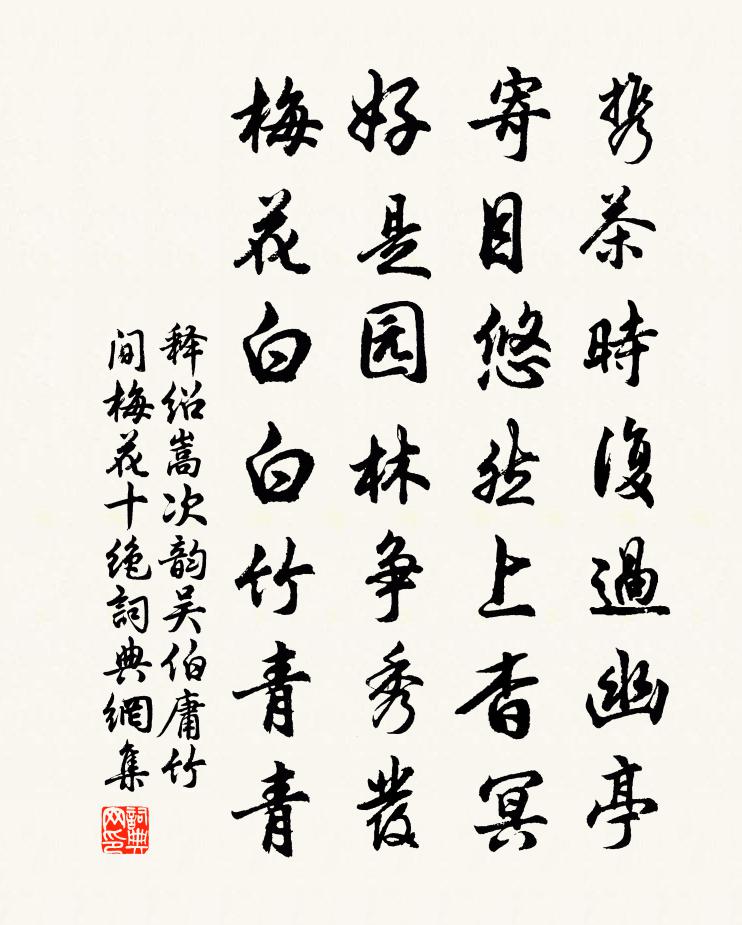 携茶時復過幽亭
寄目悠然上杳冥
好是园林争秀發
梅花白白竹青青
释绍嵩次韵吴伯庸竹
间梅花十绝詞典網集
詞典
网印